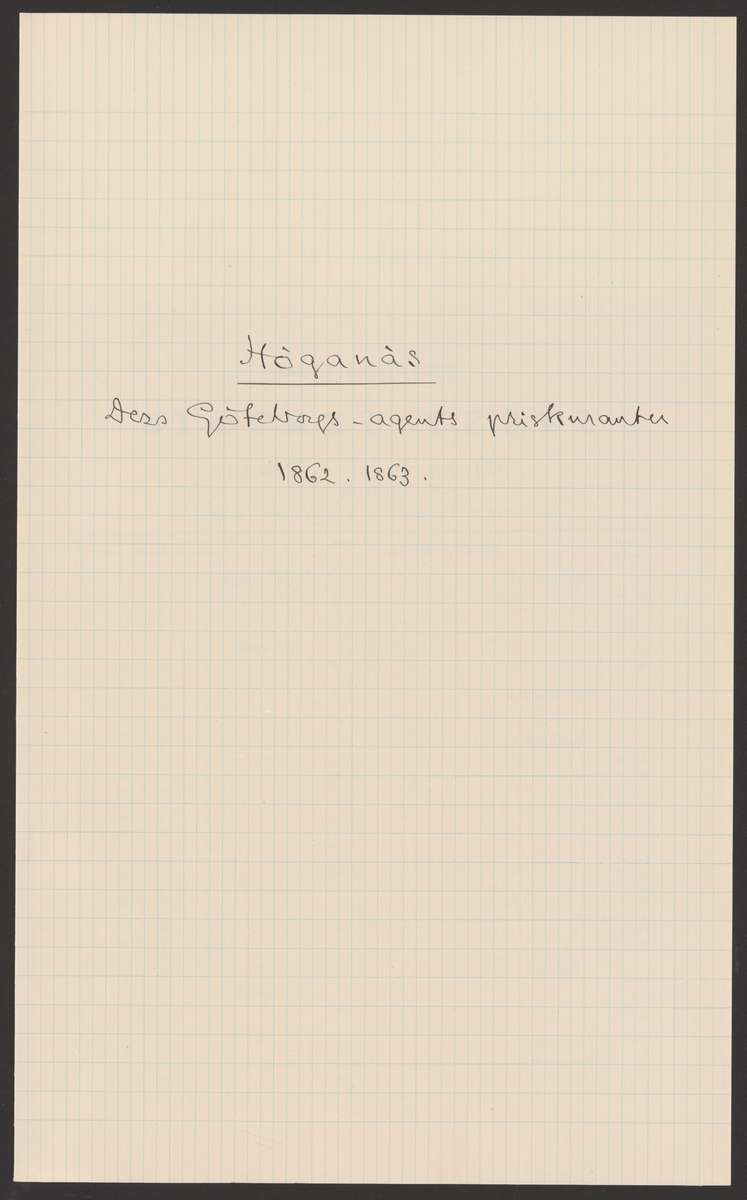 Höganäs
Dess Göteborgs-agents priskuranter
1862. 1863.